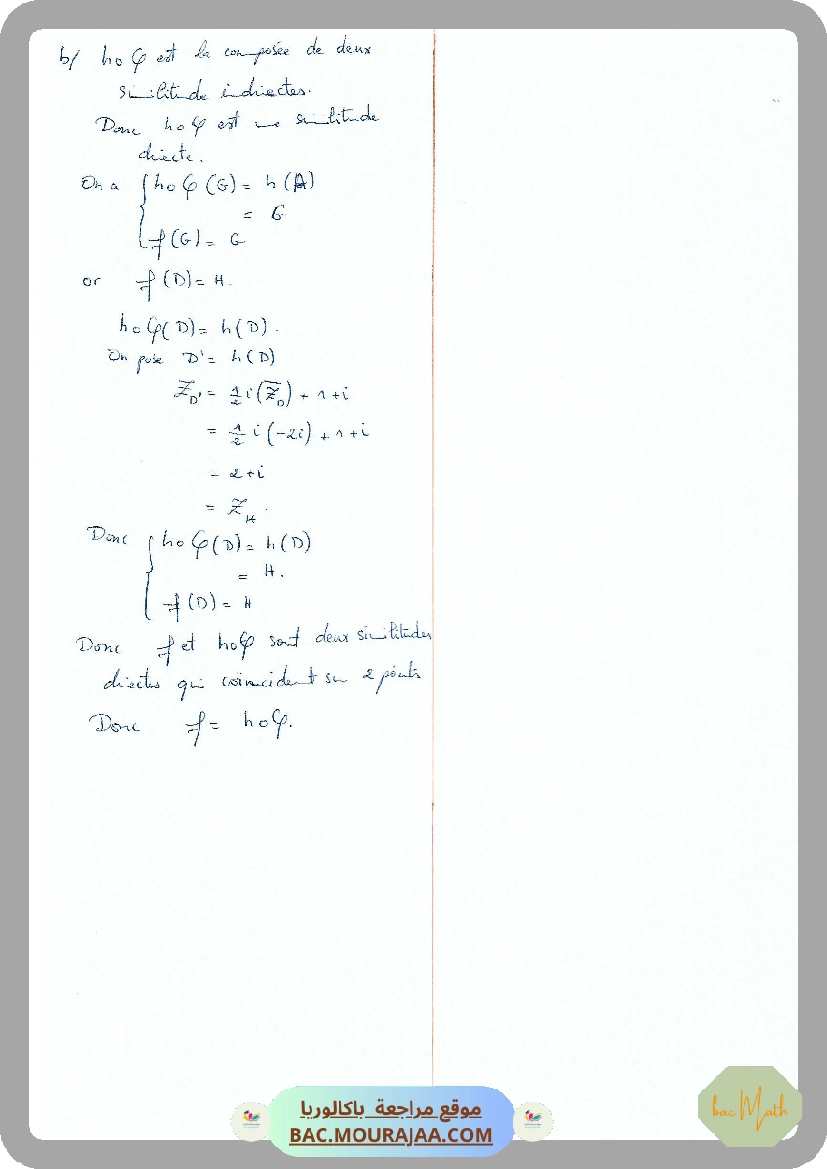 b/ hoφ est la composée de deux
similitude indirectes.
Donc hoφ est une similitude
directe.
On a { hoφ(G) = h(A)
= G
f(G) = G
or f(D) = H.
hoφ(D) = h(D).
On pose D' = h(D)
Z_D' = 1/2 i(Z̅_D) + 1+i
= 1/2 i(-2i) + 1+i
= 2+i
= Z_H.
Donc { hoφ(D) = h(D)
= H.
f(D) = H
Donc f et hoφ sont deux similitudes
directes qui coïncident sur 2 points
Donc f = hoφ.
موقع مراجعة باكالوريا
BAC.MOURAJAA.COM
bac Math